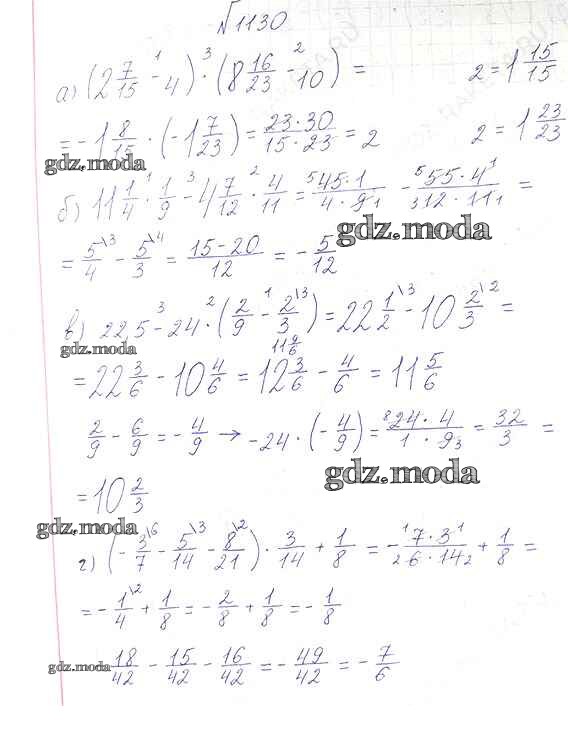 №1130
а) (2 7/15 - 4) · (8 16/23 - 10) = 2 = 1 15/15
= -1 8/15 · (-1 7/23) = 23·30/15·23 = 2 2 = 1 23/23
gdz.moda
б) 11 1/4 · 1/9 - 4 7/12 · 4/11 = 45·1/4·9 - 55·4/12·11 =
gdz.moda
= 5/4 - 5/3 = 15-20/12 = - 5/12
в) 22,5 - 24 · (2/9 - 2/3) = 22 1/2 - 10 2/3 =
gdz.moda
11 9/6
= 22 3/6 - 10 4/6 = 12 3/6 - 4/6 = 11 5/6
2/9 - 6/9 = - 4/9 → -24 · (- 4/9) = 24·4/1·9 = 32/3 =
gdz.moda
= 10 2/3
gdz.moda
г) (- 3/7 - 5/14 - 8/21) · 3/14 + 1/8 = - 7·3/6·14 + 1/8 =
= - 1/4 + 1/8 = - 2/8 + 1/8 = - 1/8
gdz.moda 18/42 - 15/42 - 16/42 = - 49/42 = - 7/6